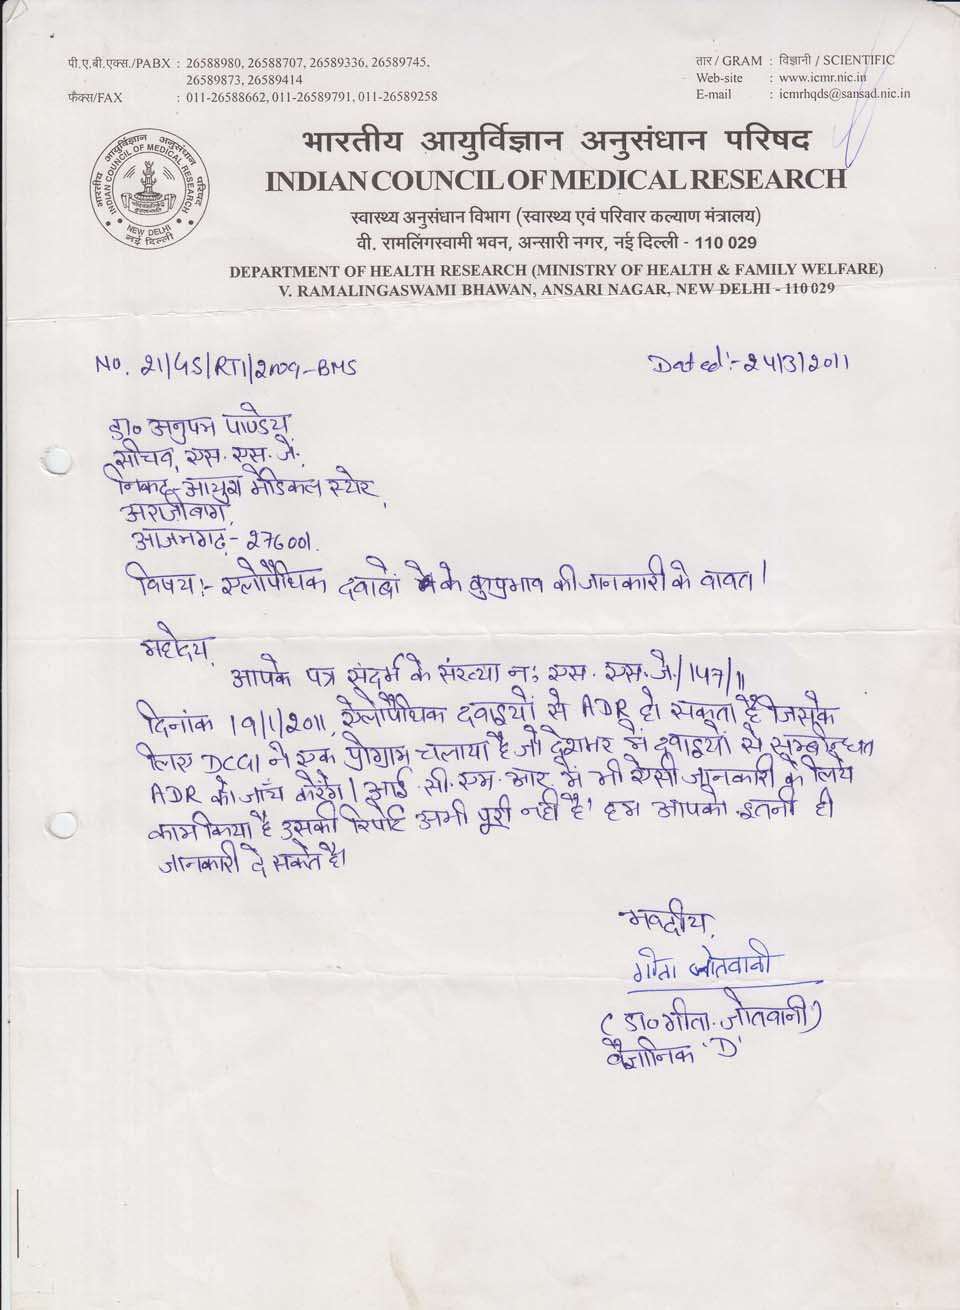 पी.ए.बी.एक्स./PABX : 26588980, 26588707, 26589336, 26589745,
26589873, 26589414
फैक्स/FAX : 011-26588662, 011-26589791, 011-26589258
तार / GRAM : विज्ञानी / SCIENTIFIC
Web-site : www.icmr.nic.in
E-mail : icmrhqds@sansad.nic.in
भारतीय आयुर्विज्ञान अनुसंधान परिषद
INDIAN COUNCIL OF MEDICAL RESEARCH
भारतीय आयुर्विज्ञान अनुसंधान परिषद
INDIAN COUNCIL OF MEDICAL RESEARCH
NEW DELHI
नई दिल्ली
स्वास्थ्य अनुसंधान विभाग (स्वास्थ्य एवं परिवार कल्याण मंत्रालय)
वी. रामलिंगस्वामी भवन, अन्सारी नगर, नई दिल्ली - 110 029
DEPARTMENT OF HEALTH RESEARCH (MINISTRY OF HEALTH & FAMILY WELFARE)
V. RAMALINGASWAMI BHAWAN, ANSARI NAGAR, NEW DELHI - 110 029
No. 21/GS/RTI/2009-BMS
Dated:- 24/3/2011
डा० अनुपम पाण्डेय
सचिव, एस. एस. जे.,
निकट- आयुश मेडिकल स्टोर,
अराजीबाग,
आजमगढ़- 276001.
विषय:- एलोपैथिक दवाओं के दुष्प्रभाव की जानकारी के वावत।
महोदय,
आपके पत्र संदर्भ के संख्या न: एस. एस. जे./147/11
दिनांक 19/1/2011, ऐलोपैथिक दवाइयों से ADR हो सकता है जिसके
लिए DCGI ने एक प्रोगाम चलाया है जो देशभर में दवाइयों से सम्बन्धित
ADR की जाँच करेंगे। आई. सी. एम. आर. में भी ऐसी जानकारी के लिये
काम किया है उसकी रिपोर्ट अभी पूरी नही है। हम आपको इतनी ही
जानकारी दे सकते है।
भवदीय,
गीता जोतवानी
(डा० गीता. जोतवानी)
वैज्ञानिक 'D'